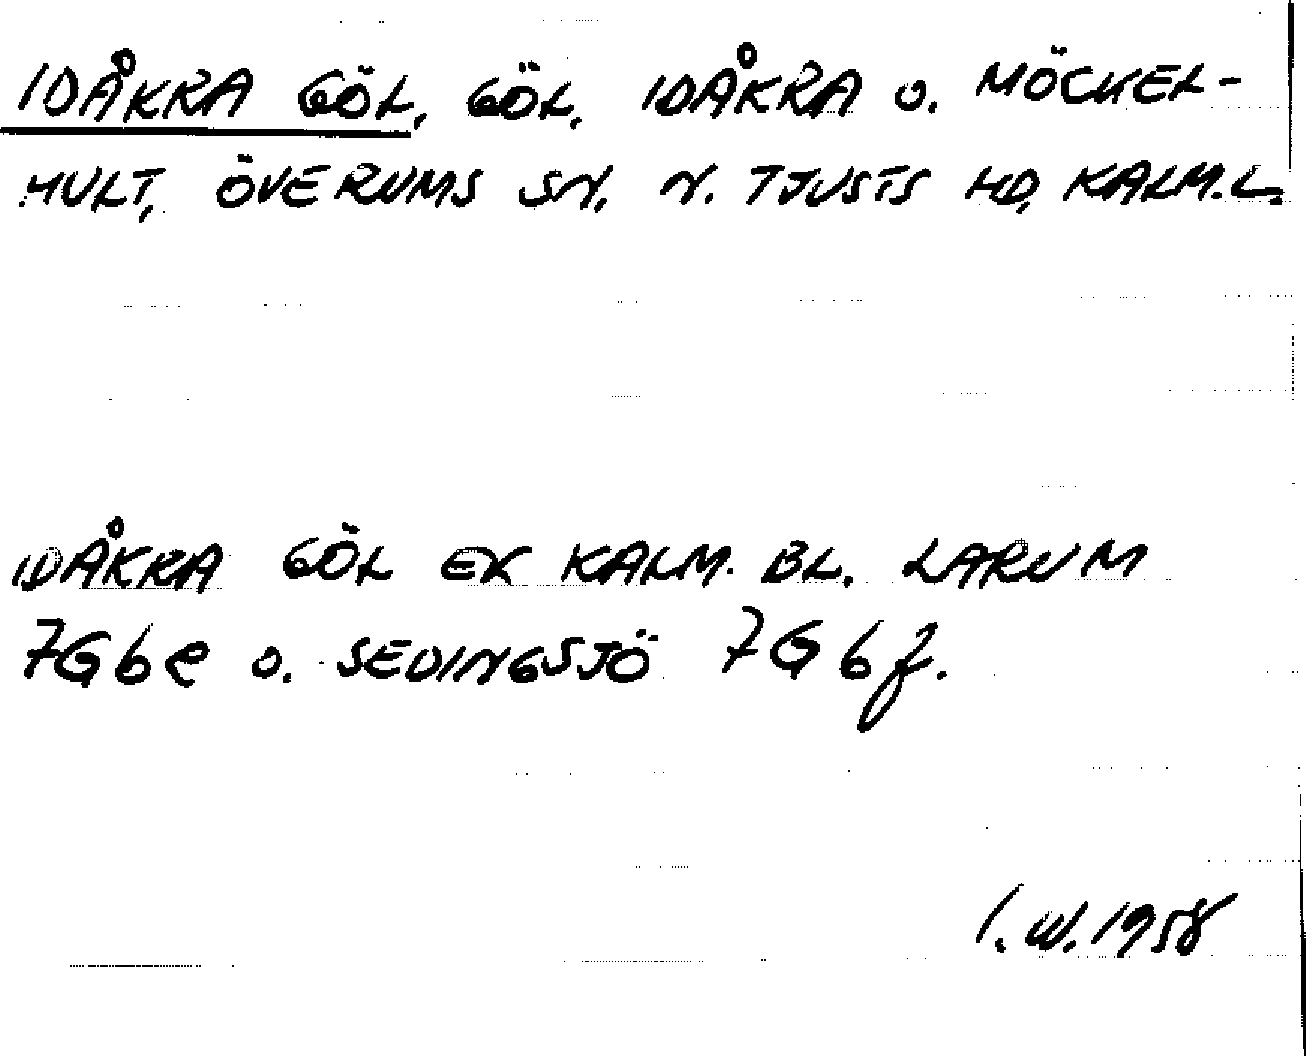 IDÅKRA GÖL, GÖL, IDÅKRA O. MÖCKEL-
HULT, ÖVERUMS SN, N. TJUSTS HD, KALM.L.
IDÅKRA GÖL EK KALM. BL. LARUM
7G6e O. SEDINGSJÖ 7G6f.
I.W.1958